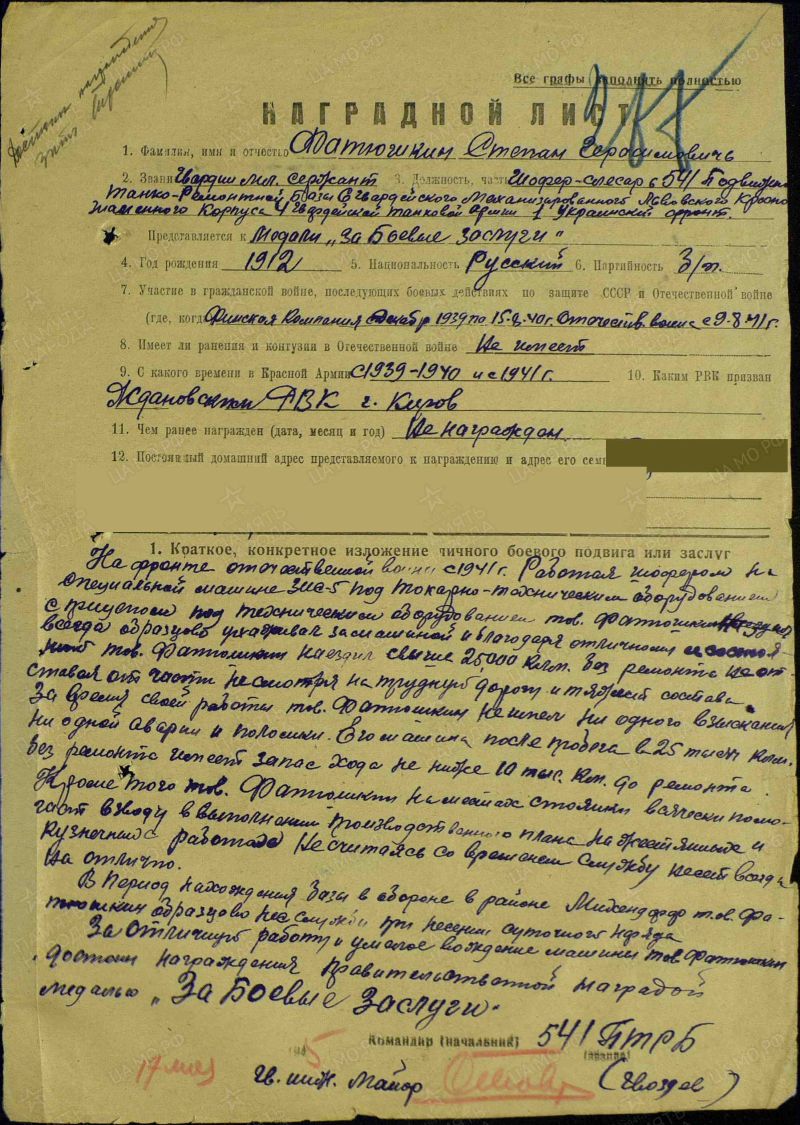 Все графы заполнять полностью
НАГРАДНОЙ ЛИСТ
1. Фамилия, имя и отчество Фатюшкин Степан Герасимовичь
2. Звание Гвардии мл. сержант 3. Должность, часть Шофер-слесар 541 Подвижн
Танко-Ремонтной Базы 6 Гвардейского Механизированного Львовского Красно
знаменного Корпуса 4 Гвардейской танковой армии 1 Украинский фронт.
Представляется к Медали „За Боевые заслуги"
4. Год рождения 1912 5. Национальность Русский 6. Партийность б/п.
7. Участие в гражданской войне, последующих боевых действиях по защите СССР и Отечественной войне
(где, когда) Финская Компания декабр 1939 по 15-8-40г. Отечеств. война с 9-8-41г.
8. Имеет ли ранения и контузии в Отечественной войне Не имеет
9. С какого времени в Красной Армии с 1939-1940 и с 1941г. 10. Каким РВК призван
Ждановским РВК г. Киров
11. Чем ранее награжден (дата, месяц и год) Не награжден.
12. Постоянный домашний адрес представляемого к награждению и адрес его семьи
1. Краткое, конкретное изложение личного боевого подвига или заслуг
На фронте отечественной войны с 1941г. Работая шофером на
специальной машине ЗИС-5 под токарно-техническим оборудованием
с прицепом под техническим оборудованием тов. Фатюшкин
всегда образцово ухаживал за машиной и благодаря отличной
тов. Фатюшкин наездил свыше 25,000 клм. без ремонта не от-
ставая от части несмотря на трудную дорогу и тяжест состава.
За время своей работы тов. Фатюшкин не имел ни одного взыскания
ни одной аварии и поломки. Его машина после пробега в 25 тысяч клм.
без ремонта имеет запас хода не ниже 10 тыс. клм. до ремонта.
Кроме того тов. Фатюшкин на местах стоянки всячески помо-
гает взводу в выполнении производственного плана на жестянных и
кузнечных работах не считаясь со временем службу несет всегда
на отлично.
В период нахождения базы в обороне в районе тов. Фа-
тюшкин образцово нес службу при несении суточного наряда
За отличную работу и умелое вождение машины тов. Фатюшкин
достоин награждения правительственной наградой
медалью „За Боевые Заслуги".
Командир (начальник) 541 ПТРБ
17 мая 5 (звание)
Гв. инж. Майор (Гвоздев)